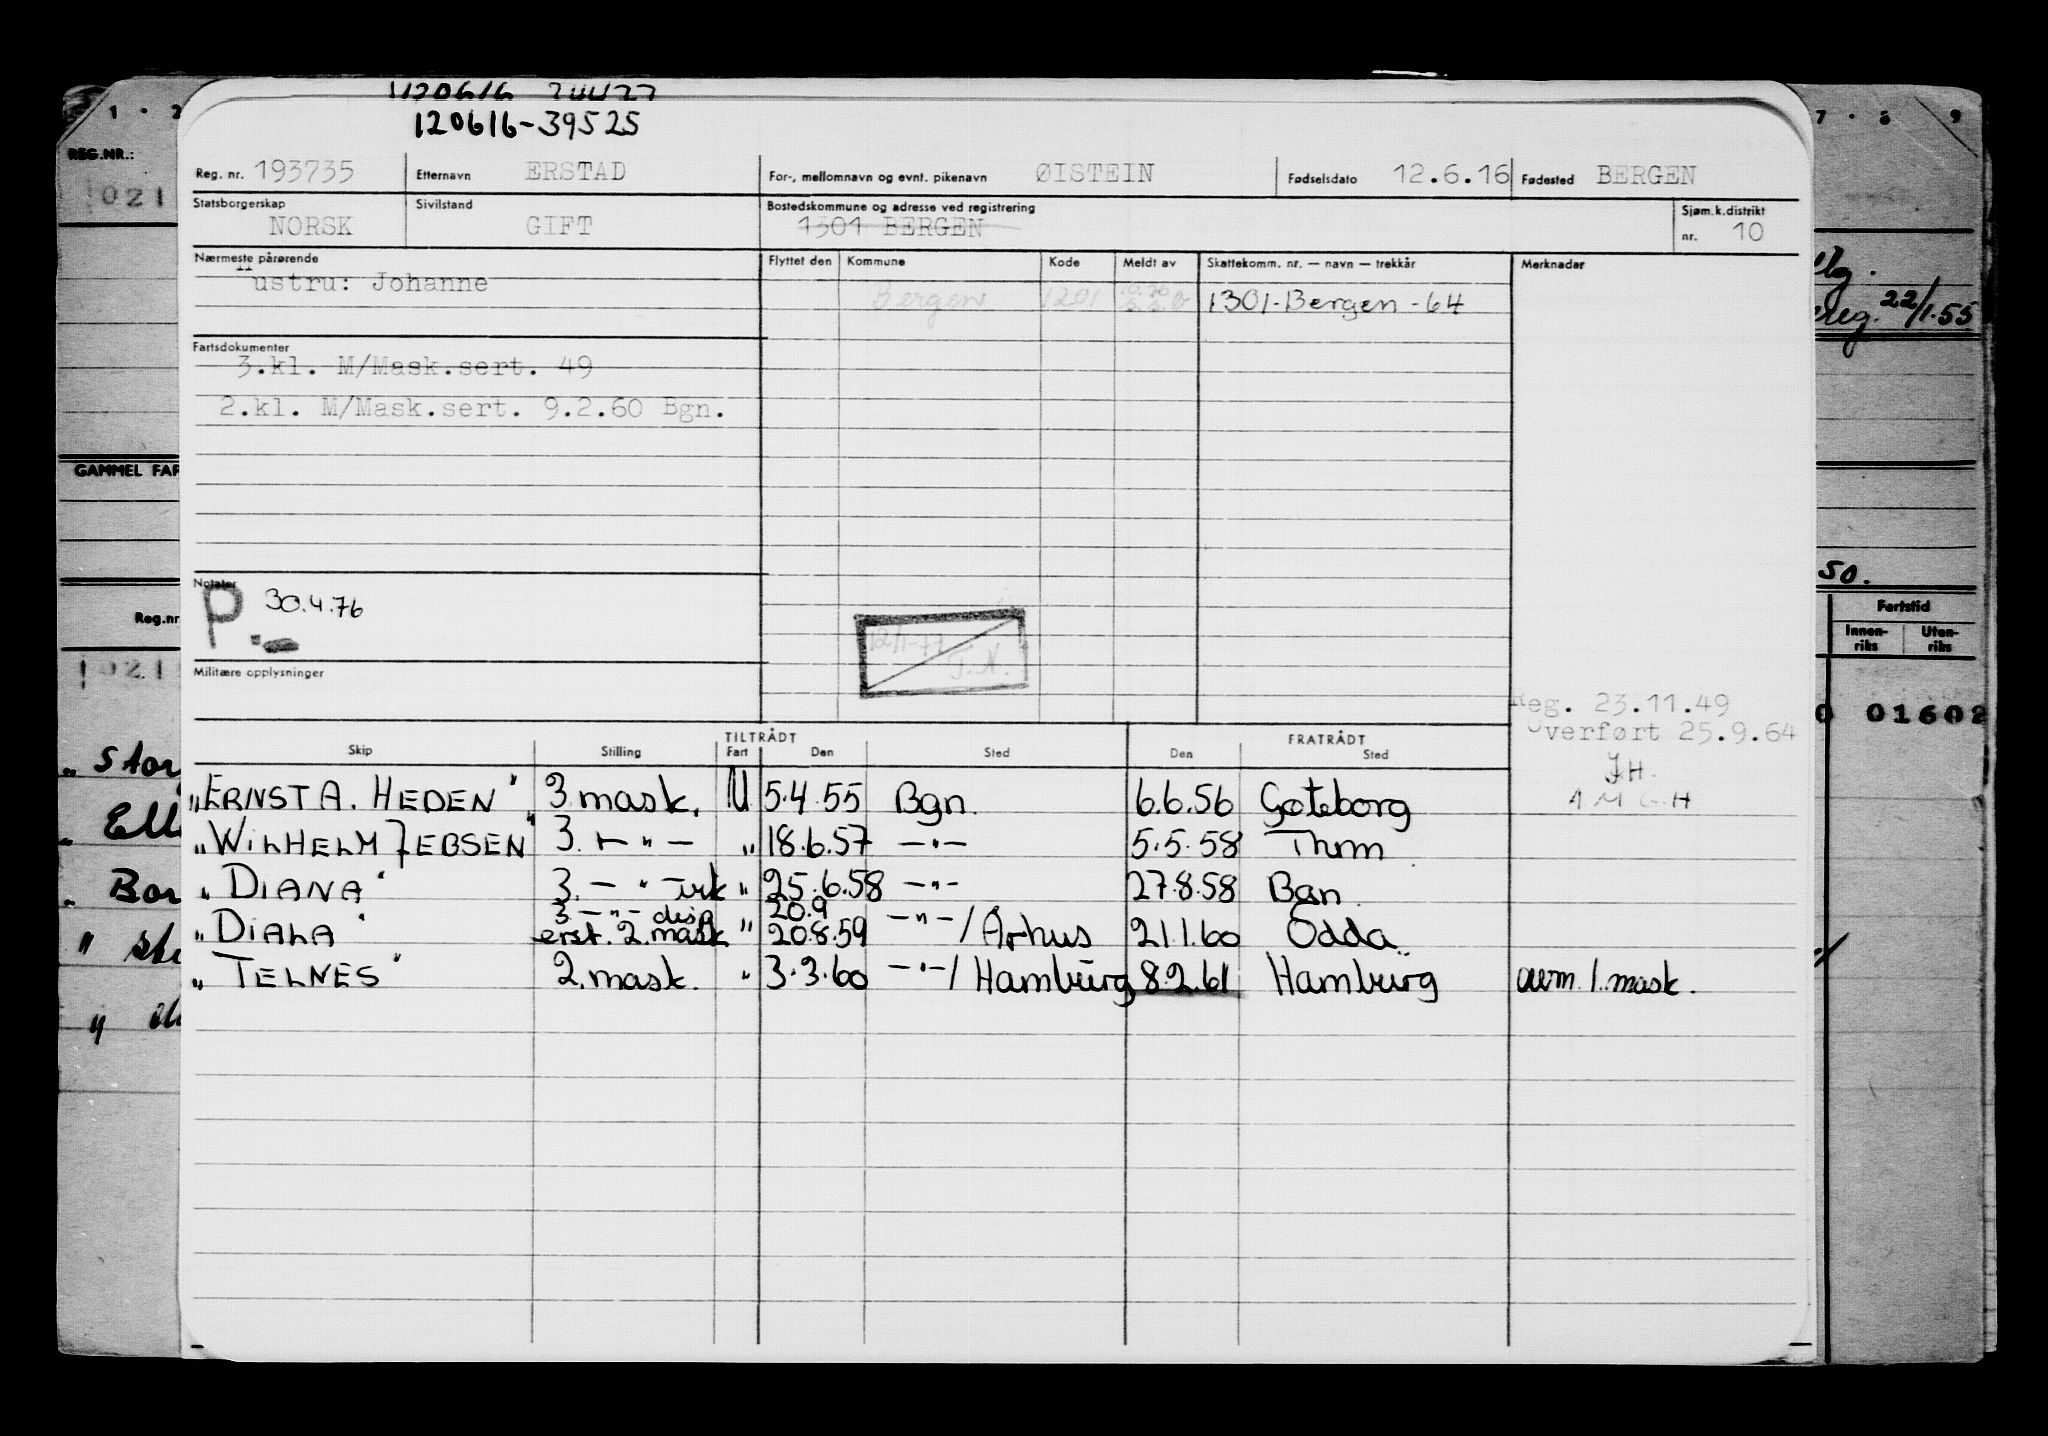 120616-39525
Reg. nr. 193735 Etternavn ERSTAD For-, mellomnavn og evnt. pikenavn ØISTEIN Fødselsdato 12.6.16 Fødested BERGEN
Statsborgerskap NORSK Sivilstand GIFT Bostedskommune og adresse ved registrering 1301 BERGEN Sjøm.k.distrikt nr. 10
Nærmeste pårørende Flyttet den Kommune Kode Meldt av Skattekomm. nr. — navn — trekkår Merknader
ustru: Johanne Bergen 1201 1301-Bergen-64
Fartsdokumenter
3.kl. M/Mask.sert. 49
2.kl. M/Mask.sert. 9.2.60 Bgn.
Notater
P 30.4.76
12/1-77
T.N.
Militære opplysninger
Reg. 23.11.49
Overført 25.9.64
J.H.
A M G.H
TILTRÅDT FRATRÅDT
Skip Stilling Fart Den Sted Den Sted
"ERNST A. HEDEN" 3 mask. U 5.4.55 Bgn. 6.6.56 Gøteborg
"WILHELM JEBSEN" 3. — " — " 18.6.57 — " — 5.5.58 Thm
"DIANA" 3. — " — " 25.6.58 — " — 27.8.58 Bgn.
3. — " — disp 20.9
"DIALA" erst. 2. mask " 20.8.59 — " — / Århus 21.1.60 Odda
"TELNES" 2. mask. " 3.3.60 — " — / Hamburg 8.2.61 Hamburg avm. 1. mask.
1 · 2
REG.NR.:
021
GAMMEL FAR
Reg.nr
021
" Stor
" Ell
" Bor
7 · 8 9
reg. 22/1.55
50.
Fartstid
Innen-riks Uten-riks
0 01602